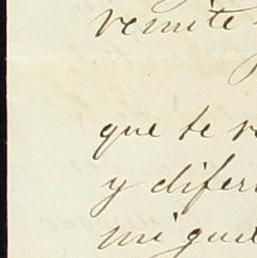 remite
que te
y difer
mi que